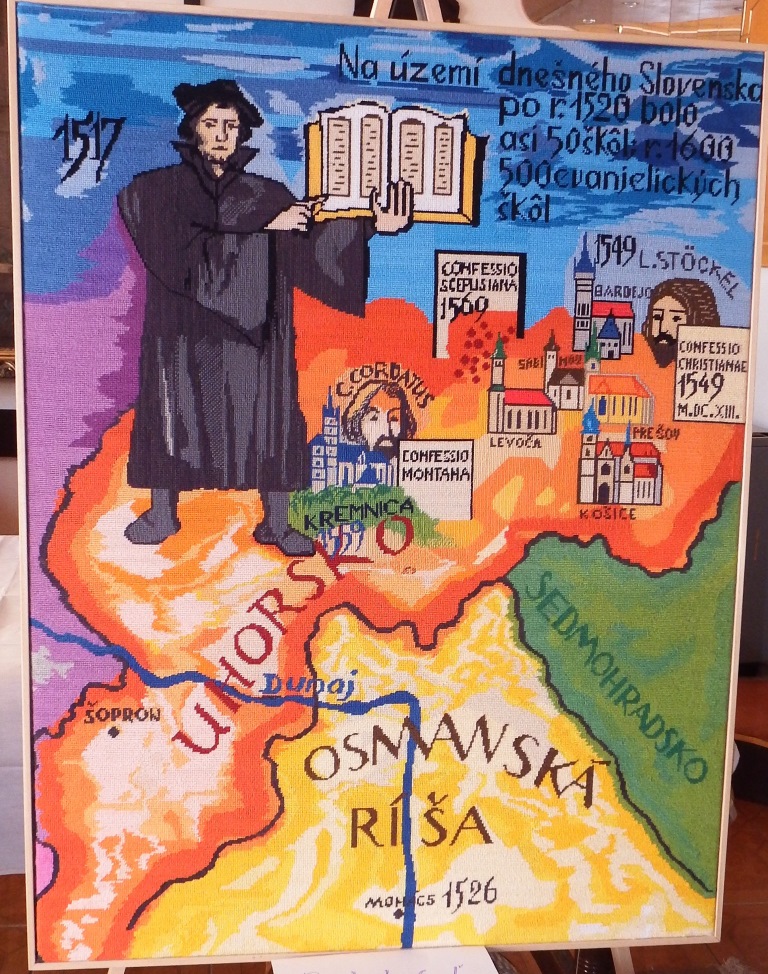 1517
Na území dnešného Slovenska
po r. 1520 bolo
asi 50 škôl; r. 1600
500 evanjelických
škôl
1549 L. STÖCKEL
BARDEJO
CONFESSIO
SCEPUSIANA
1569
CONFESSIO
CHRISTIANAE
1549
M.DC.XIII.
SABI
NOV
LEVOČA
PREŠOV
KOŠICE
C. CORDATUS
CONFESSIO
MONTANA
KREMNICA
1559
UHORSKO
SEDMOHRADSKO
Dunaj
ŠOPRON
OSMANSKÁ
RÍŠA
MOHÁCS 1526